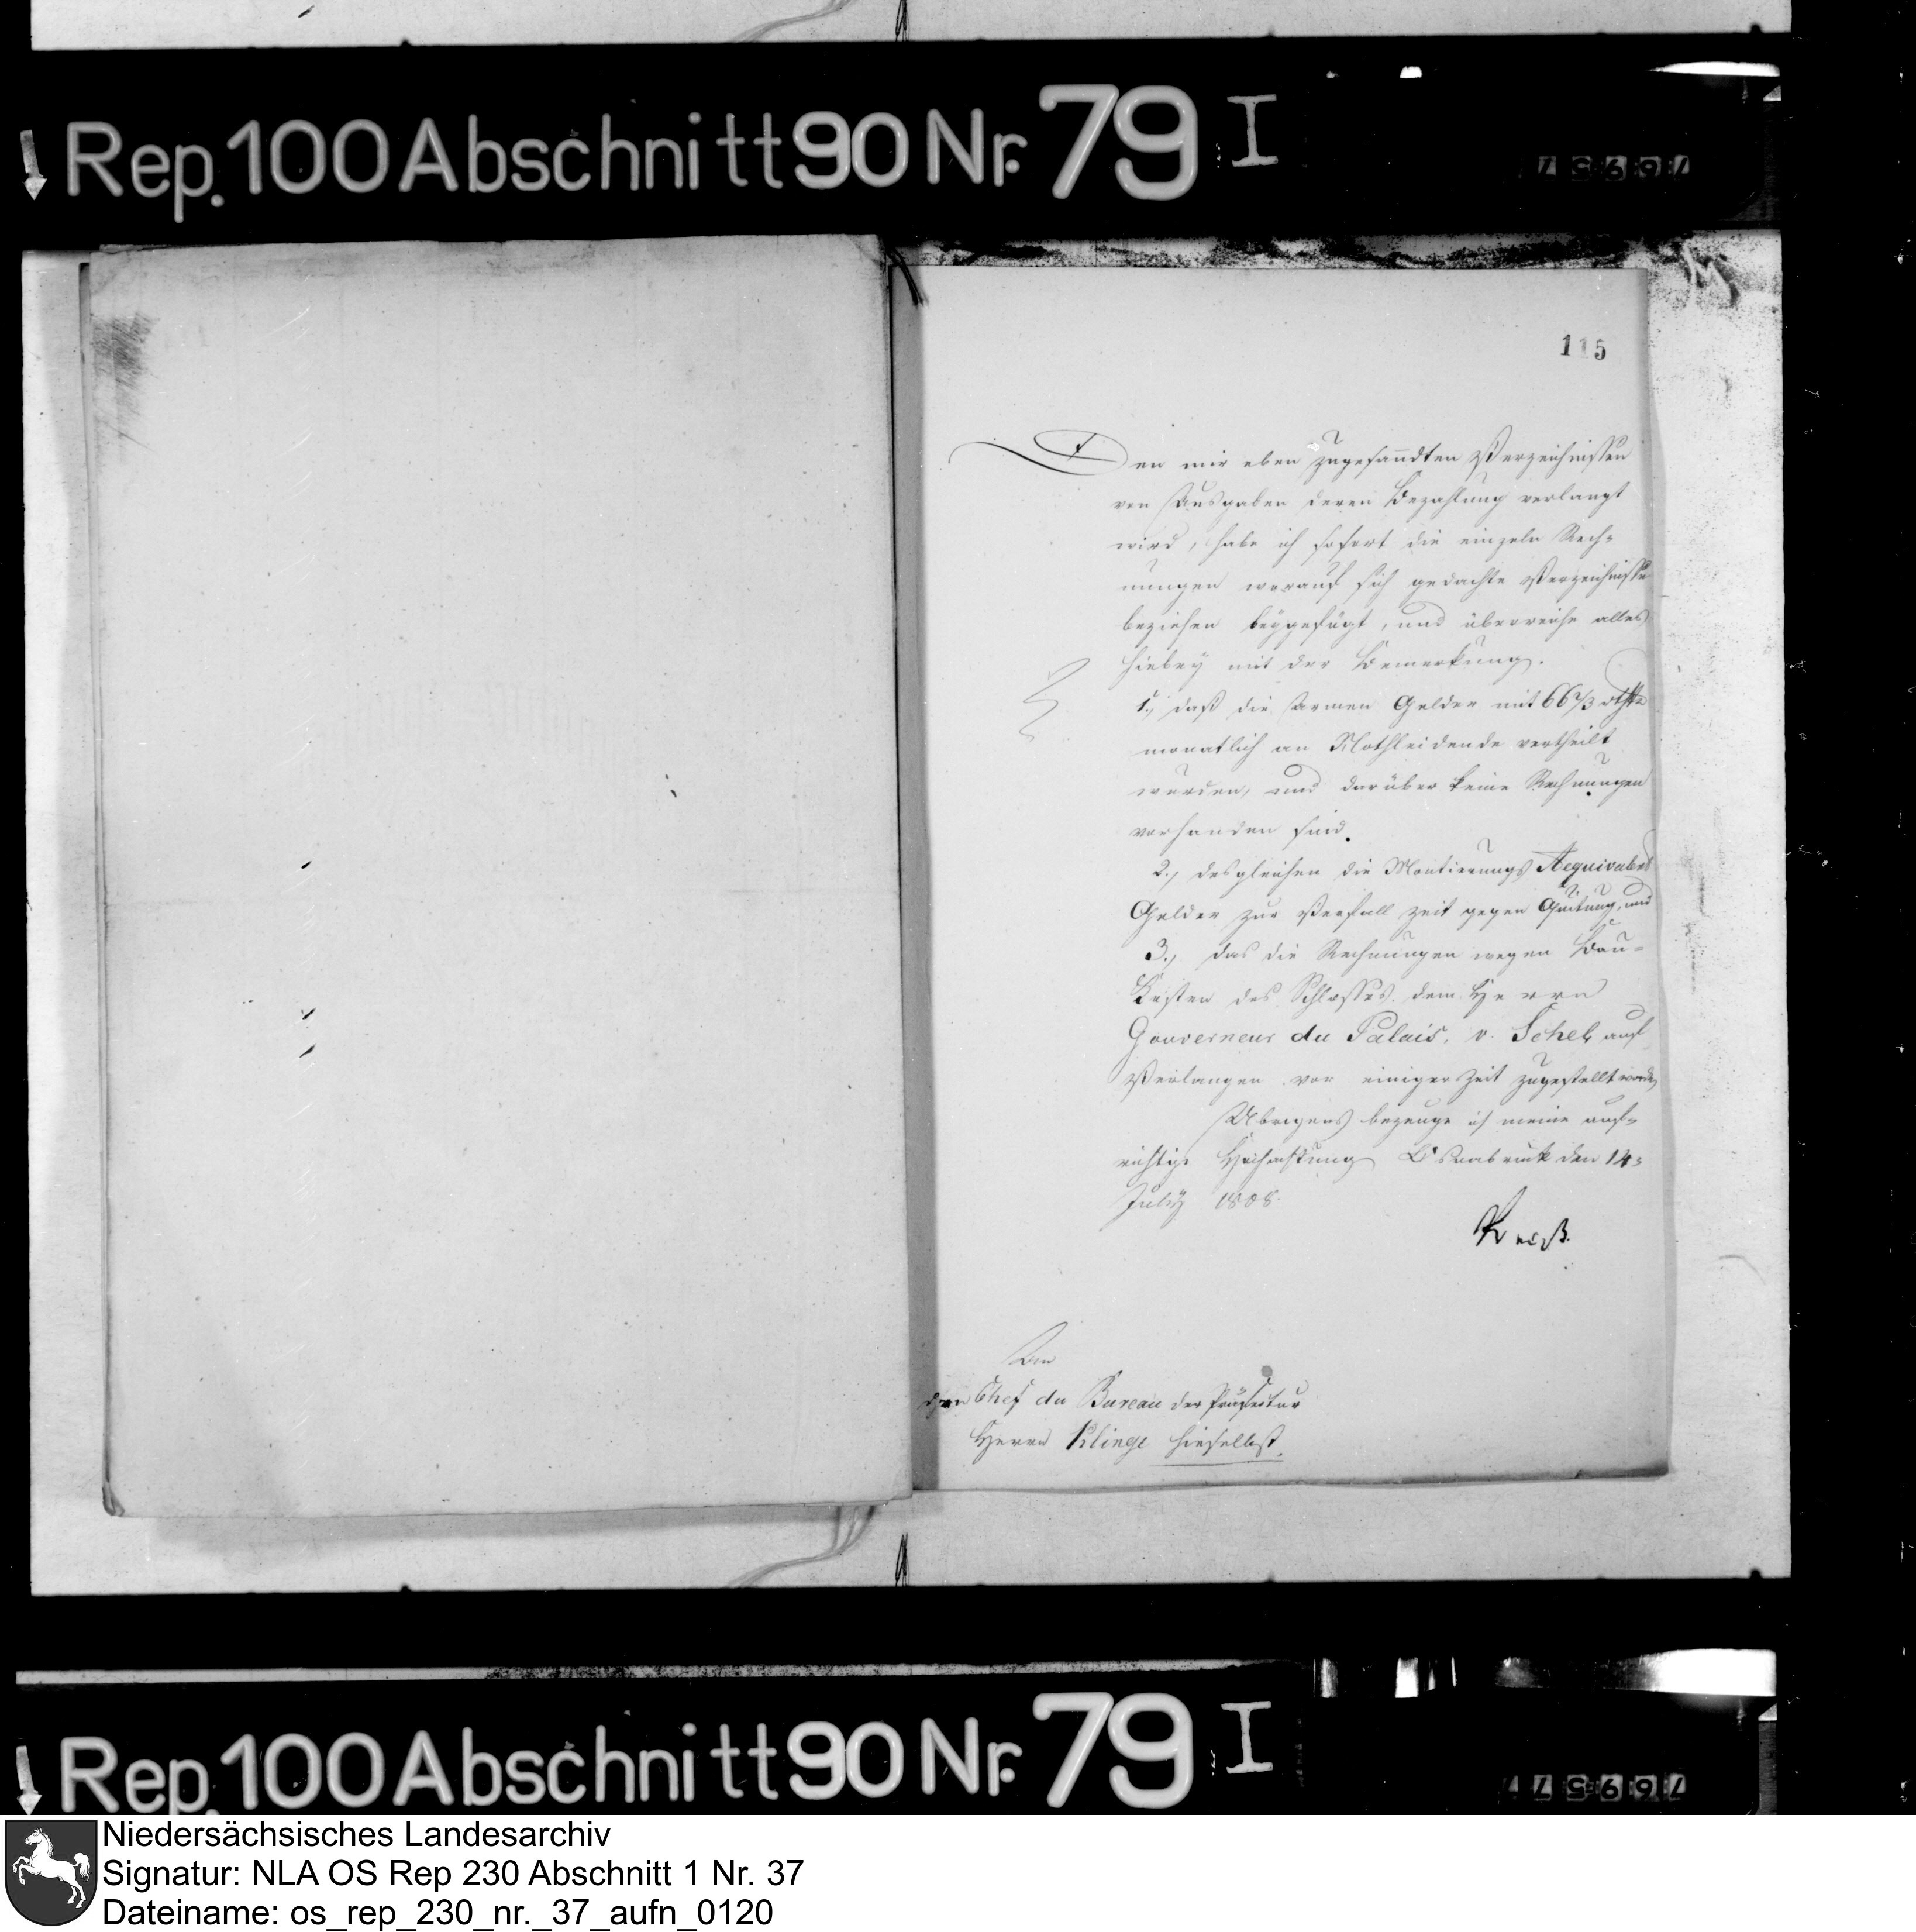 Rep. 100 Abschnitt 90 Nr. 79 I
115
Den mir eben zugesandten Verzeichnissen
von Ausgaben deren Bezahlung verlangt
wird, habe ich sofort die einzeln Rech-
nungen worauf sich gedachte Verzeichnisse
beziehen beygefügt, und überreiche alles
hiebey mit der Bemerkung.
1., daß die Armen Gelder mit 66 2/3 rthlr
monatlich an Nothleidende vertheilt
wurden, und darüber keine Rechnungen
vorhanden sind.
2., desgleichen die Montierungs Aequivalent
Gelder zur Verfall zeit gegen Quitung, und
3., das die Rechnungen wegen Bau-
Kosten des Schlosses dem Herrn
Gouverneur du Palais, v. Schele auf
Verlangen vor einiger Zeit zugestellt worden
Übrigens bezeuge ich meine auf-
richtige Hochachtung Osnabrück den 14=
July 1808.
An
den Chef du Bureau der Präfectur
Herrn Klinge hieselbst.
Rep. 100 Abschnitt 90 Nr. 79 I
Niedersächsisches Landesarchiv
Signatur: NLA OS Rep 230 Abschnitt 1 Nr. 37
Dateiname: os_rep_230_nr._37_aufn_0120